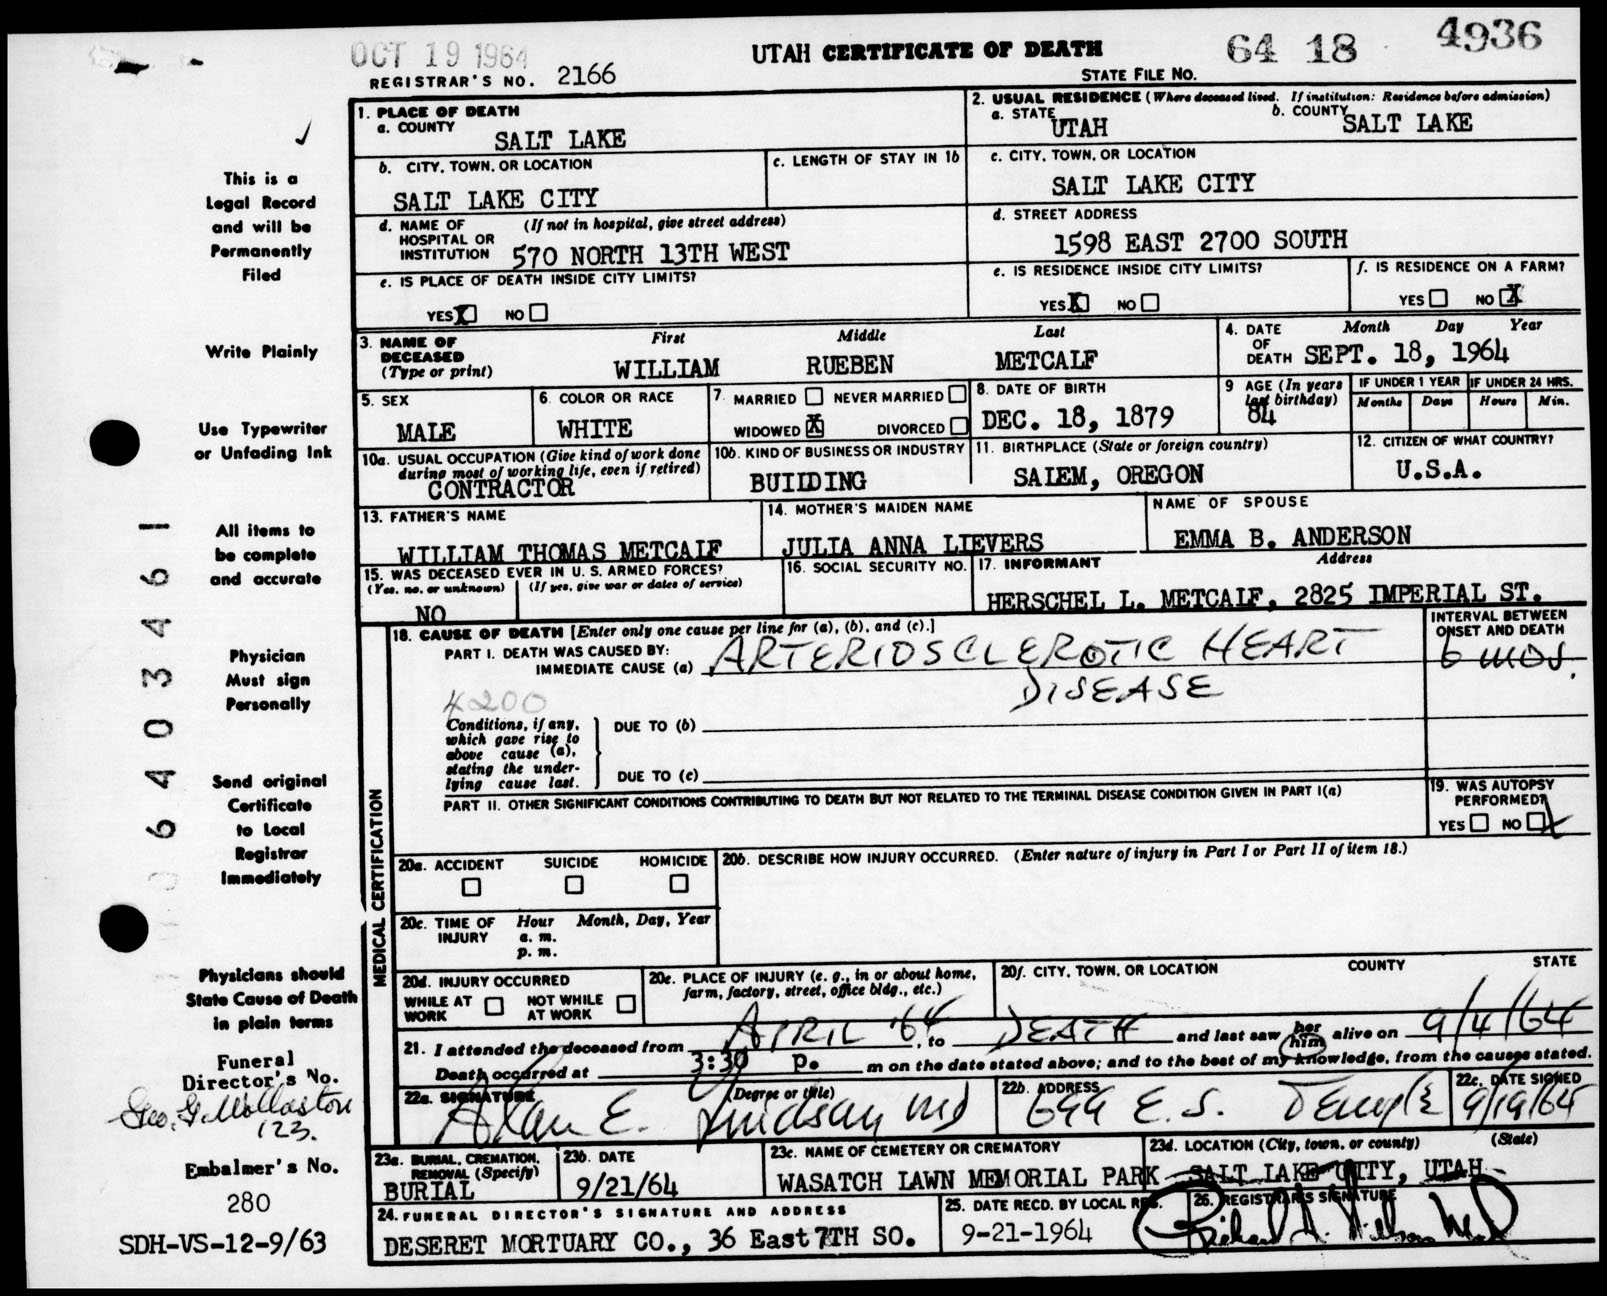 OCT 19 1964
UTAH CERTIFICATE OF DEATH
64 18 4936
REGISTRAR'S NO. 2166
STATE FILE NO.
1. PLACE OF DEATH
a. COUNTY
SALT LAKE
2. USUAL RESIDENCE (Where deceased lived. If institution: Residence before admission)
a. STATE UTAH
b. COUNTY SALT LAKE
b. CITY, TOWN, OR LOCATION
SALT LAKE CITY
c. LENGTH OF STAY IN 1b
c. CITY, TOWN, OR LOCATION
SALT LAKE CITY
d. NAME OF HOSPITAL OR INSTITUTION (If not in hospital, give street address)
570 NORTH 13TH WEST
d. STREET ADDRESS
1598 EAST 2700 SOUTH
e. IS PLACE OF DEATH INSIDE CITY LIMITS?
YES X NO
e. IS RESIDENCE INSIDE CITY LIMITS?
YES X NO
f. IS RESIDENCE ON A FARM?
YES NO X
3. NAME OF DECEASED (Type or print)
First Middle Last
WILLIAM RUEBEN METCALF
4. DATE OF DEATH Month Day Year
SEPT. 18, 1964
5. SEX
MALE
6. COLOR OR RACE
WHITE
7. MARRIED NEVER MARRIED
WIDOWED X DIVORCED
8. DATE OF BIRTH
DEC. 18, 1879
9 AGE (In years last birthday)
84
IF UNDER 1 YEAR
Months Days
IF UNDER 24 HRS.
Hours Min.
10a. USUAL OCCUPATION (Give kind of work done during most of working life, even if retired)
CONTRACTOR
10b. KIND OF BUSINESS OR INDUSTRY
BUILDING
11. BIRTHPLACE (State or foreign country)
SALEM, OREGON
12. CITIZEN OF WHAT COUNTRY?
U.S.A.
13. FATHER'S NAME
WILLIAM THOMAS METCALF
14. MOTHER'S MAIDEN NAME
JULIA ANNA LIEVERS
NAME OF SPOUSE
EMMA B. ANDERSON
15. WAS DECEASED EVER IN U. S. ARMED FORCES?
(Yes, no, or unknown) (If yes, give war or dates of service)
NO
16. SOCIAL SECURITY NO.
17. INFORMANT Address
HERSCHEL L. METCALF, 2825 IMPERIAL ST.
18. CAUSE OF DEATH [Enter only one cause per line for (a), (b), and (c).]
PART I. DEATH WAS CAUSED BY:
IMMEDIATE CAUSE (a) ARTERIOSCLEROTIC HEART
DISEASE
INTERVAL BETWEEN ONSET AND DEATH
6 mos.
4200
Conditions, if any, which gave rise to above cause (a), stating the underlying cause last.
DUE TO (b)
DUE TO (c)
PART II. OTHER SIGNIFICANT CONDITIONS CONTRIBUTING TO DEATH BUT NOT RELATED TO THE TERMINAL DISEASE CONDITION GIVEN IN PART I(a)
19. WAS AUTOPSY PERFORMED?
YES NO X
MEDICAL CERTIFICATION
20a. ACCIDENT SUICIDE HOMICIDE
20b. DESCRIBE HOW INJURY OCCURRED. (Enter nature of injury in Part I or Part II of item 18.)
20c. TIME OF INJURY Hour Month, Day, Year
a. m.
p. m.
20d. INJURY OCCURRED
WHILE AT WORK NOT WHILE AT WORK
20e. PLACE OF INJURY (e. g., in or about home, farm, factory, street, office bldg., etc.)
20f. CITY, TOWN, OR LOCATION COUNTY STATE
21. I attended the deceased from APRIL '64, to DEATH and last saw her him alive on 9/4/64
Death occurred at 3:30 P. m on the date stated above; and to the best of my knowledge, from the causes stated.
22a. SIGNATURE (Degree or title)
Alan E. Lindsay MD
22b. ADDRESS
699 E. S. Temple
22c. DATE SIGNED
9/19/64
23a. BURIAL, CREMATION, REMOVAL (Specify)
BURIAL
23b. DATE
9/21/64
23c. NAME OF CEMETERY OR CREMATORY
WASATCH LAWN MEMORIAL PARK
23d. LOCATION (City, town, or county) (State)
SALT LAKE CITY, UTAH
24. FUNERAL DIRECTOR'S SIGNATURE AND ADDRESS
DESERET MORTUARY CO., 36 East 7TH SO.
25. DATE RECD. BY LOCAL REG.
9-21-1964
26. REGISTRAR'S SIGNATURE
This is a
Legal Record
and will be
Permanently
Filed
Write Plainly
Use Typewriter
or Unfading Ink
All items to
be complete
and accurate
Physician
Must sign
Personally
Send original
Certificate
to Local
Registrar
Immediately
Physicians should
State Cause of Death
in plain terms
Funeral
Director's No.
Geo. G. Wollaston
123.
Embalmer's No.
280
SDH-VS-12-9/63
640 3461